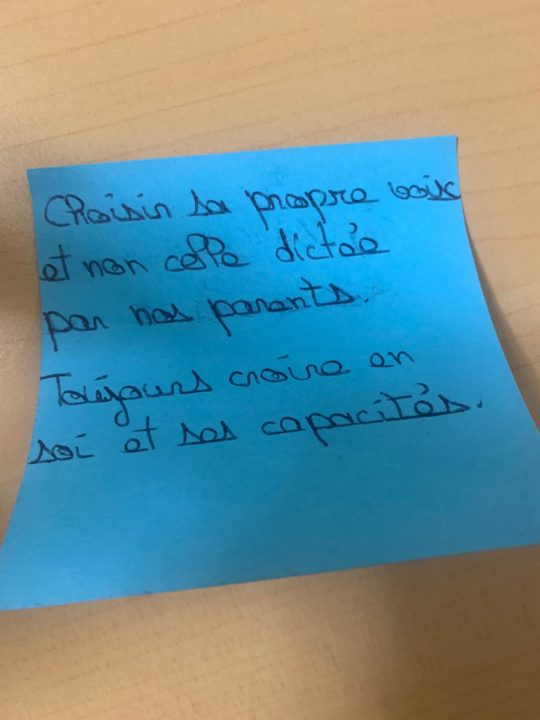 Choisir sa propre voix
et non celle dictée
par nos parents.
Toujours croire en
soi et ses capacités.